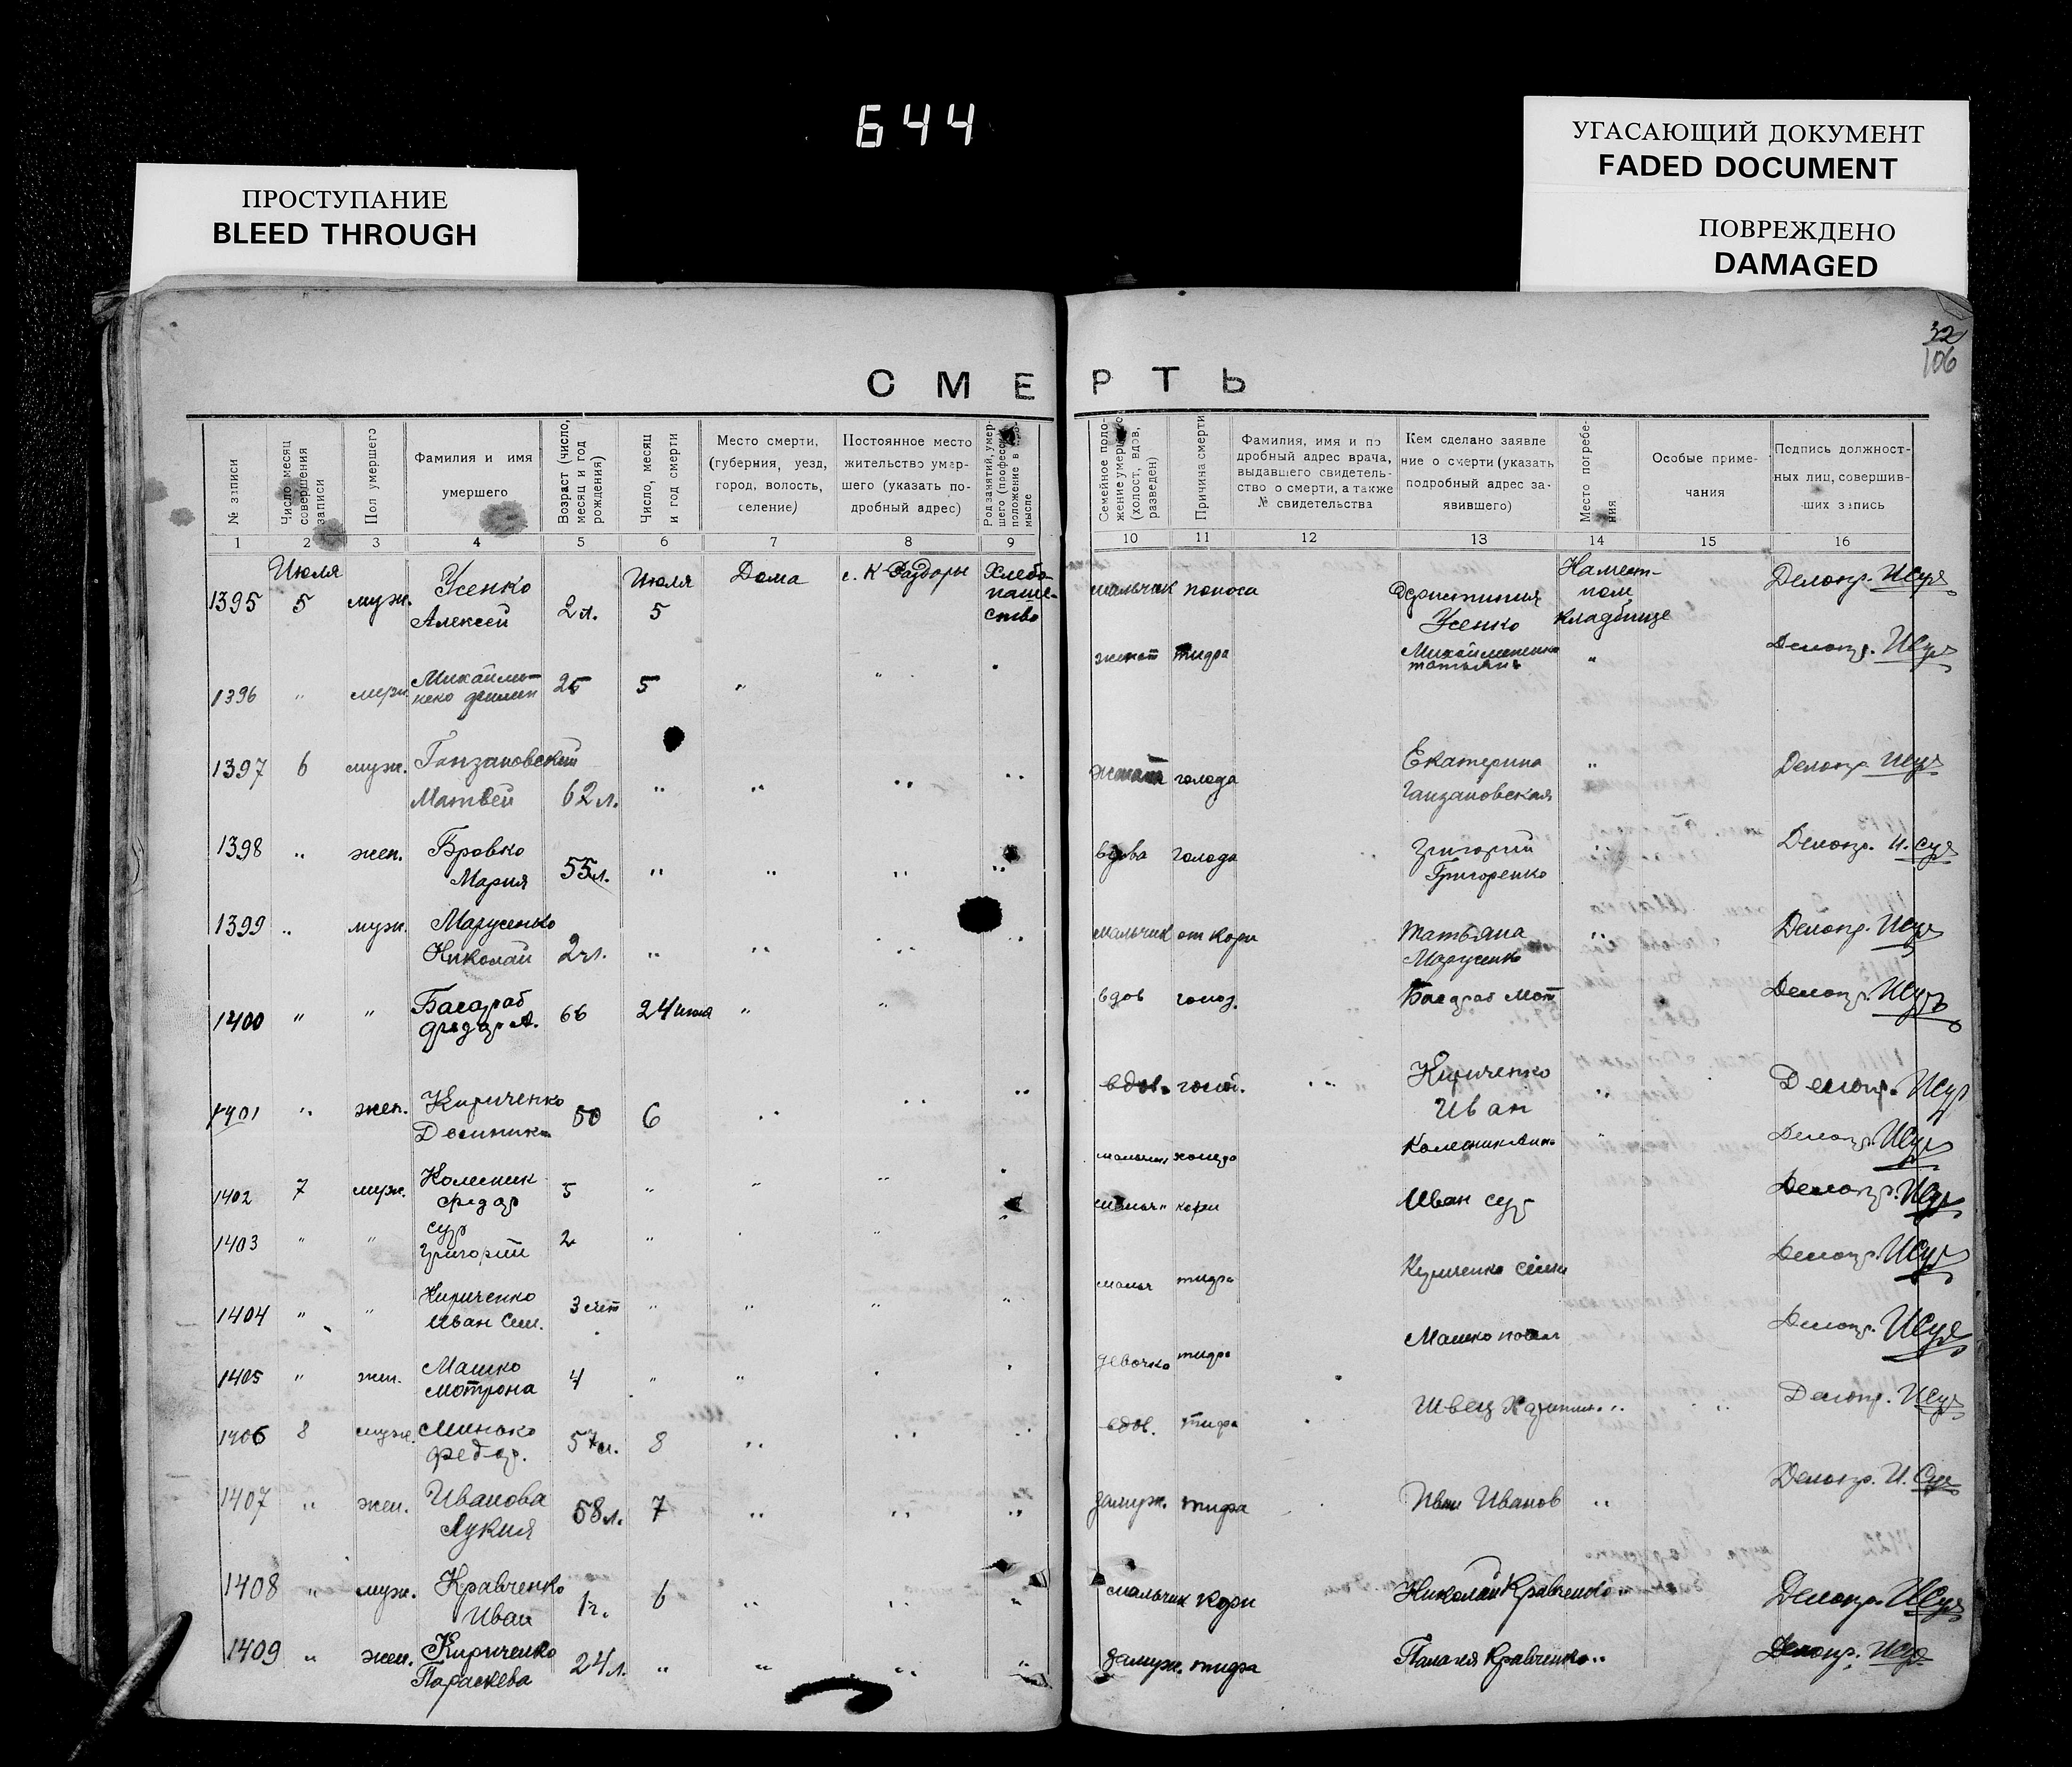 644
УГАСАЮЩИЙ ДОКУМЕНТ
FADED DOCUMENT
ПОВРЕЖДЕНО
DAMAGED
ПРОСТУПАНИЕ
BLEED THROUGH
32
106
СМЕРТЬ
№ записи
Число, месяц
совершения
записи
Пол умершего
Фамилия и имя
умершего
Возраст (число,
месяц и год
рождения)
Число, месяц
и год смерти
Место смерти,
(губерния, уезд,
город, волость,
селение)
Постоянное место
жительство умер-
шего (указать по-
дробный адрес)
Род занятий, умер-
шего (професс.
положение в
мысле
Семейное поло-
жение умерш
(холост, вдов,
разведен)
Причина смерти
Фамилия, имя и по
дробный адрес врача,
выдавшего свидетель-
ство о смерти, а также
№ свидетельства
Кем сделано заявле
ние о смерти (указать
подробный адрес за-
явившего)
Место погребе-
ния
Особые приме-
чания
Подпись должност-
ных лиц, совершив-
ших запись
1 2 3 4 5 6 7 8 9 10 11 12 13 14 15 16
1395 Июля 5 муж. Усенко Алексей 2 л. Июля 5 Дома с. К Раздоры Хлебо-паше-ство мальчик поноса Усенко кладбище Делопр.
1396 " муж 25 5 " " женат тифа " Делопр.
1397 6 муж. Ганзановский Матвей 62 л. " " " " голода Екатерина Ганзановская " Делопр.
1398 " жен. Бровко Мария 55 л. " " " " вдова голода Григорий Григоренко " Делопр.
1399 " муж. Марусенько Николай 2 л. " " " " мальчик от кори Татьяна Марусенко " Делопр.
1400 " " 66 24 " " вдов голод. Делопр.
1401 " жен. Кириченко 50 6 " " " вдов. голод. " Кириченко Иван " Делопр.
1402 7 муж. Колесник Федор 5 " " " Делопр.
1403 " " Сур Григорий 2 " " " кори Иван Сур Делопр.
1404 " " Кириченко Иван Сем. 3 " " " " мальч тифа Кириченко Делопр.
1405 " жен. Машко Мотрона 4 " " девочка тифа Машко Делопр.
1406 8 муж. Минько Федор. 57 л. 8 " " " вдов. тифа Швец " " Делопр.
1407 " жен. Иванова Лукия 58 л. 7 " " " замуж. тифа Иван Иванов " Делопр.
1408 " муж. Кравченко Иван 1 г. 6 " " " мальчик кори Николай Кравченко " Делопр.
1409 " жен. Кириченко Параскева 24 л. " " " " замуж. тифа Палагея Кравченко " Делопр.